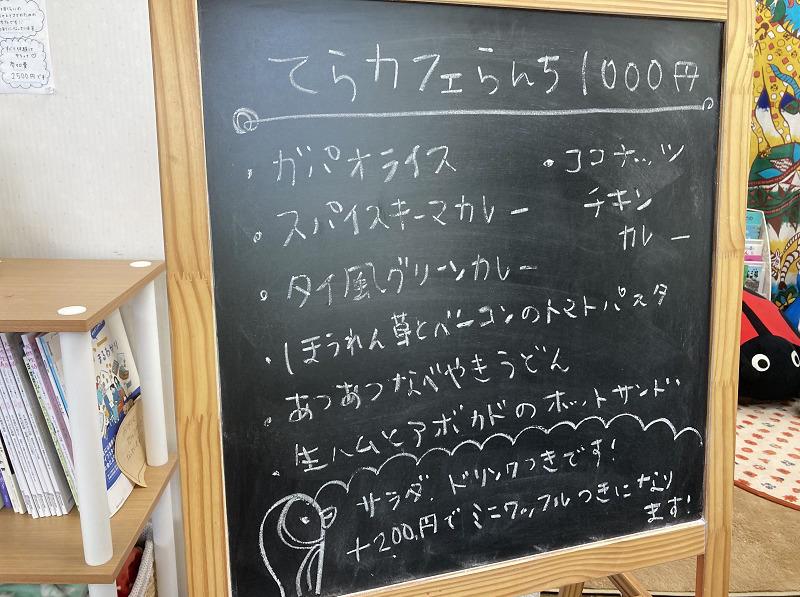 てらカフェらんち 1000円
・ガパオライス
・ココナッツ
チキン
カレー
・スパイスキーマカレー
・タイ風グリーンカレー
・ほうれん草とベーコンのトマトパスタ
・あつあつなべやきうどん
・生ハムとアボカドのホットサンド
サラダ、ドリンクつきです!
+200円でミニワッフルつきになり
ます!
2500円です